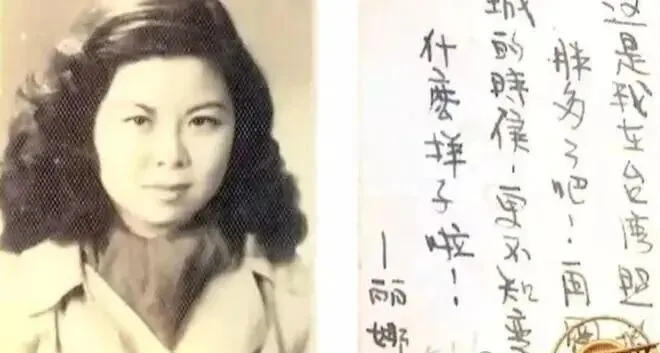 这是我在台湾照
胖多了吧！再
城的時候，更不知变
什麼样子啦！
—丽娜